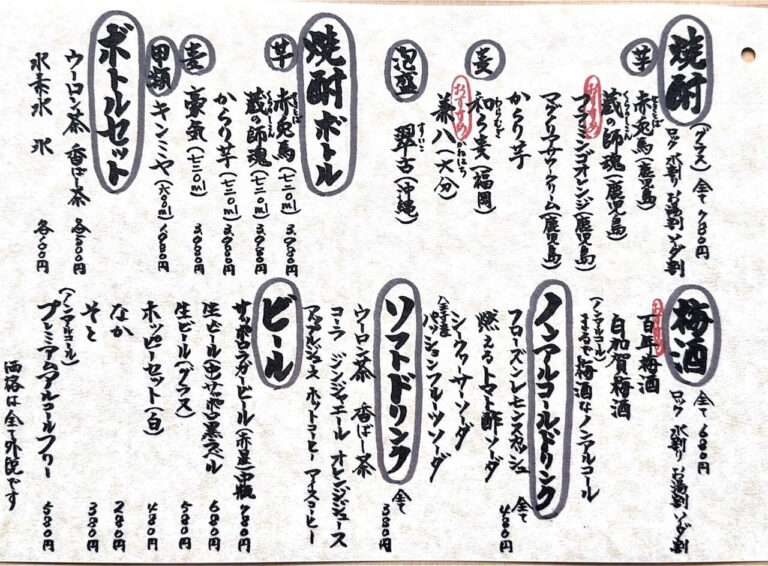 焼酎
(グラス) 全て780円
ロック 水割り お湯割 ソーダ割
芋
赤兎馬(鹿児島)
蔵の師魂(鹿児島)
おすすめ
フラミンゴオレンジ(鹿児島)
からり芋
麦
和ら麦(福岡)
おすすめ
兼八(大分)
泡盛
翠古(沖縄)
すいこ
焼酎ボトル
芋
赤兎馬(七二〇ml) 3980円
蔵の師魂(七二〇ml) 3980円
からり芋(七二〇ml) 3980円
麦
豪気(七二〇ml) 3980円
甲類
キンミヤ(六〇〇ml) 1980円
ボトルセット
ウーロン茶 香ばし茶 各500円
氷 茶水 氷 各100円
梅酒
全て680円
ロック 水割り お湯割 ソーダ割
おすすめ
百年梅酒
白加賀梅酒
(ノンアルコール)
まるで梅酒なノンアルコール
ノンアルコールドリンク
全て480円
フローズンレモンスカッシュ
燃えるトマト酢ソーダ
シークァーサーソーダ
八丈子産
パッションフルーツソーダ
ソフトドリンク
全て380円
ウーロン茶 香ばし茶
コーラ ジンジャエール オレンジジュース
アップルジュース ホットコーヒー アイスコーヒー
ビール
サッポロラガービール(赤星)中瓶 780円
生ビール(中)サッポロ黒ラベル 680円
生ビール(グラス) 580円
ホッピーセット(白) 480円
なか 280円
そと 380円
(ノンアルコール)
プレミアムアルコールフリー 580円
価格は全て外税です